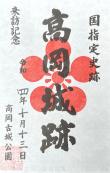 国指定史跡
高岡城跡
来訪記念
令和
四年十月十三日
高岡古城公園